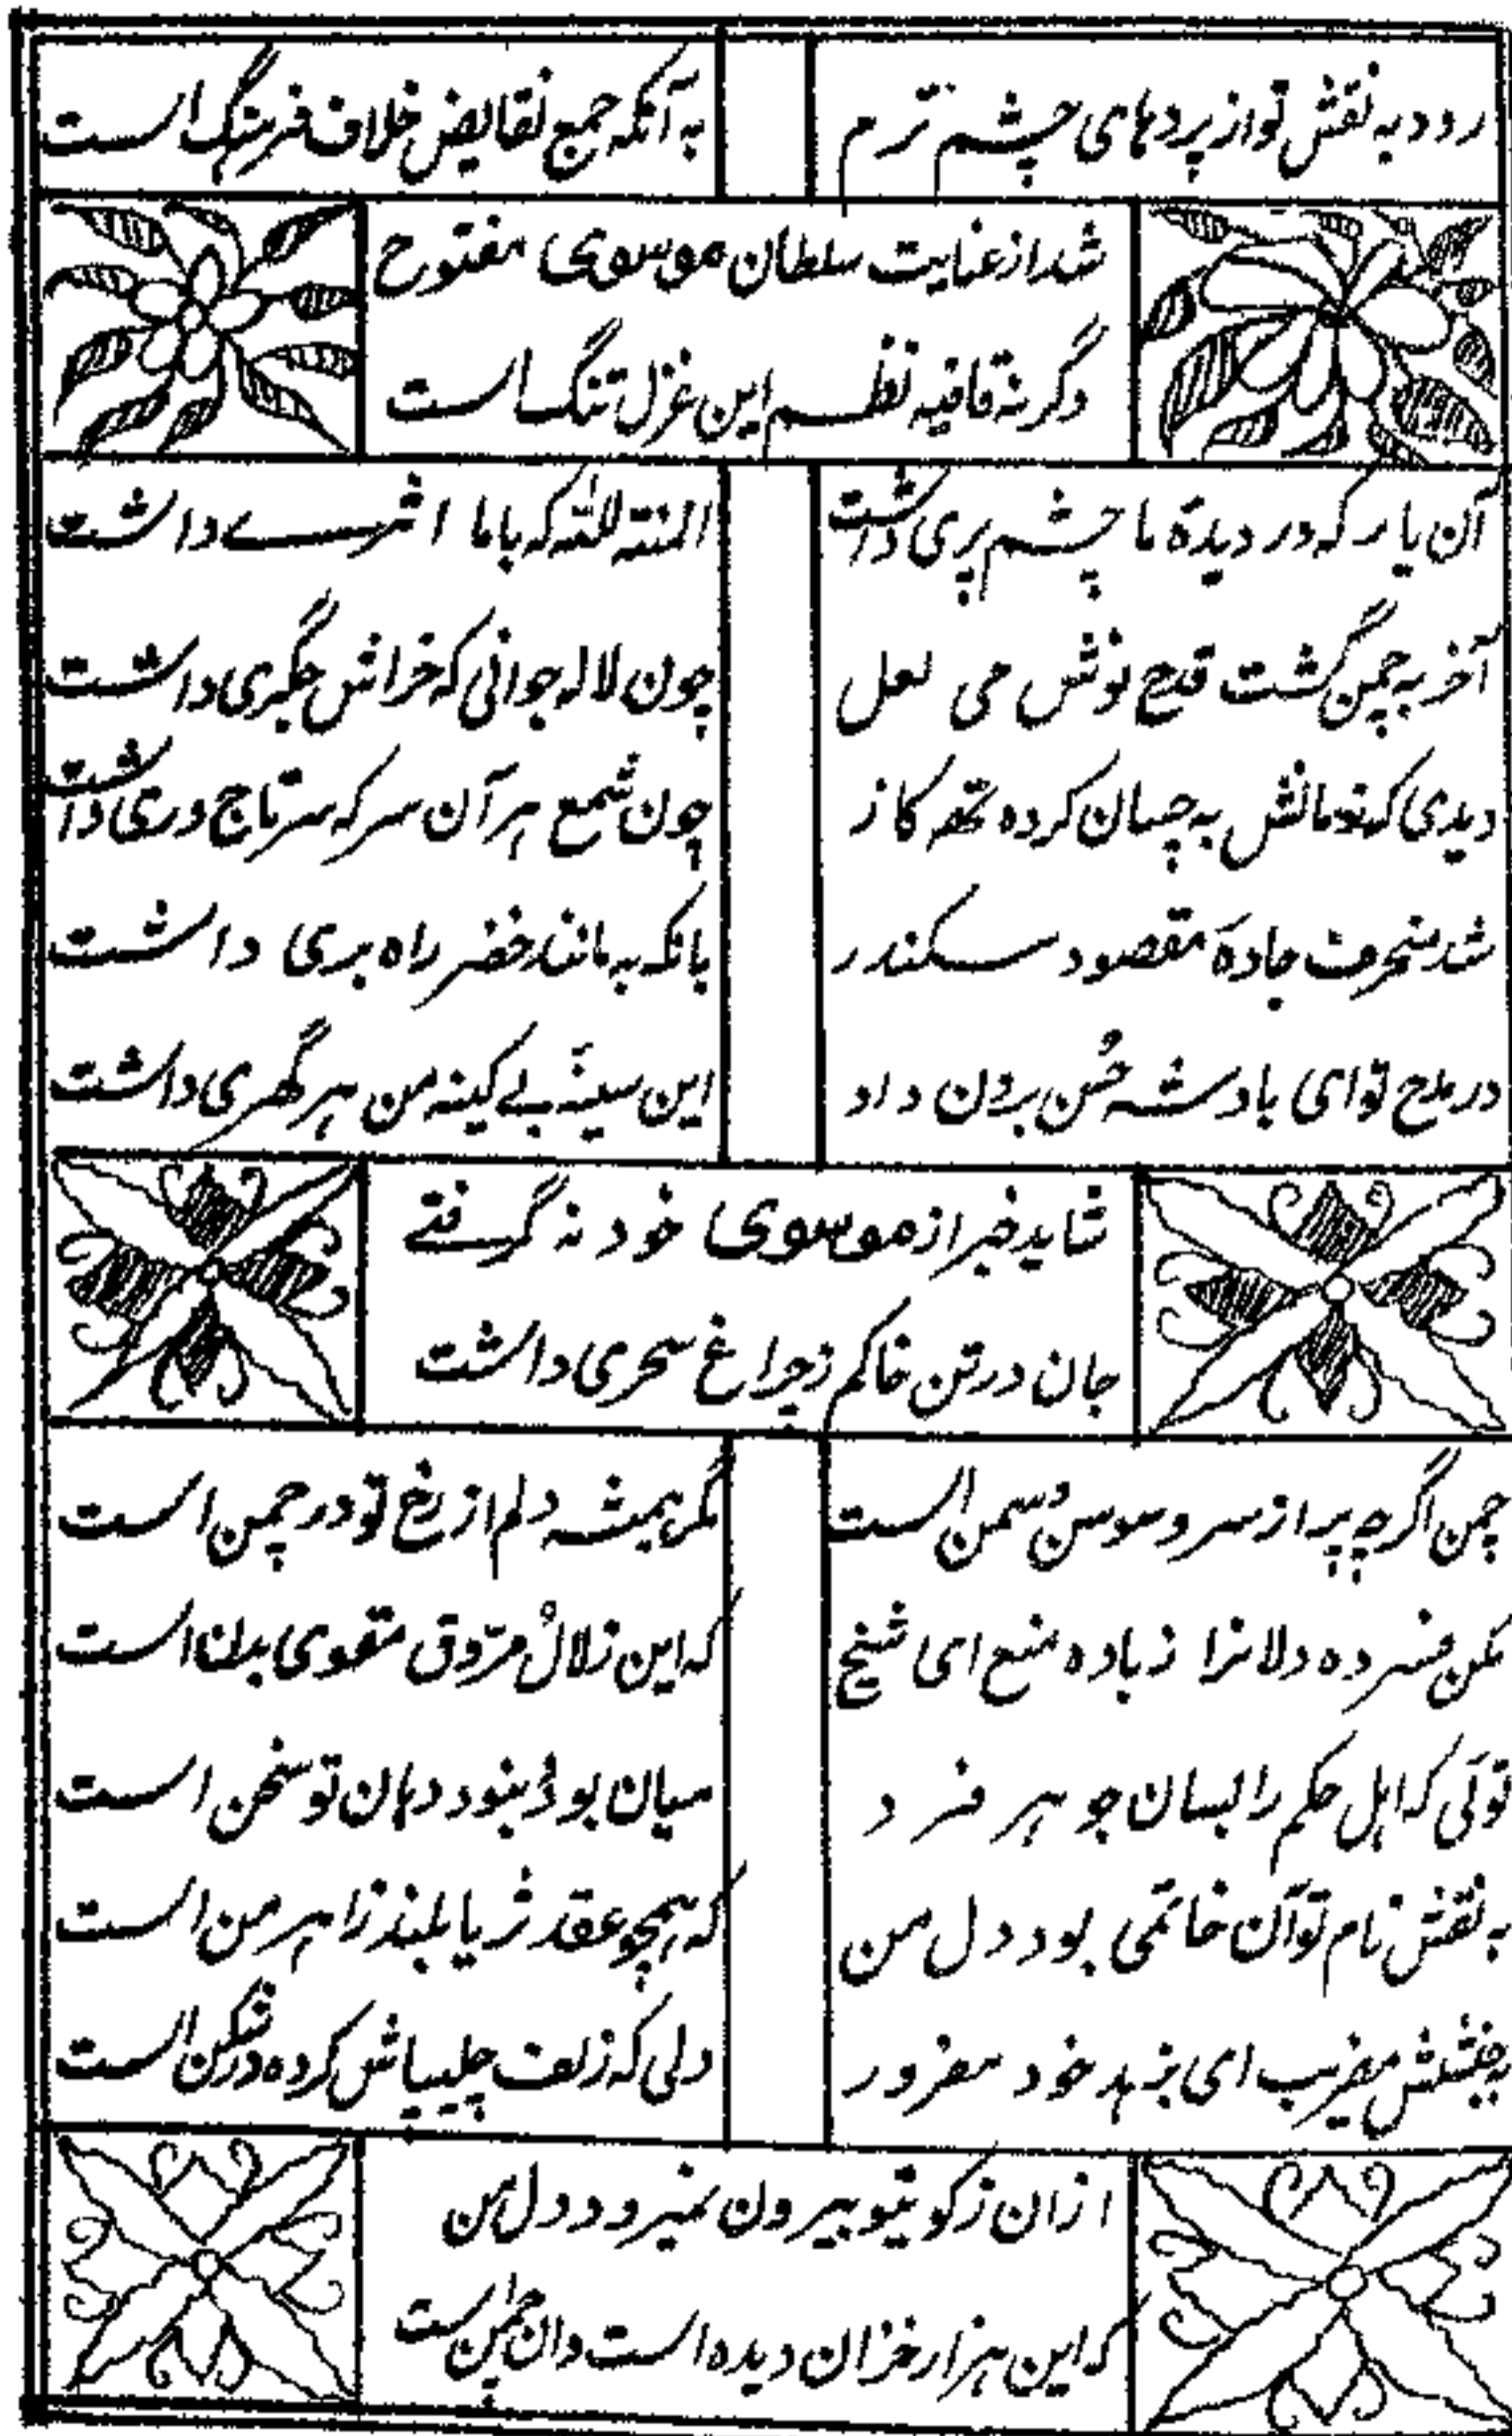 رود به نقش تو از پردهای چشم ترم
به آنکه جمع نقایض خلاف فرهنگ است
شد از عنایت سلطان موسوی مفتوح
وگرنه قافیه نظم این غزل تنگ است
آن یار که در دیدهٔ ما چشم پری داشت
المنته لله که باما اثرے داشت
آخر به چمن گشت قدح نوش می لعل
چون لاله جوانی که خراش جگری داشت
دیدی که به چسان کرده کاز
چون شمع هر آن سر که سر تاج وری داشت
شد منحرف جادهٔ مقصود سکندر
بانکه به مانند خضر راه بری داشت
در مدح تو ای بادشه حُسن برون داد
این سینهٔ بے کینه من هر گهری داشت
شاید خبر از موسوی خود نه گرفتے
جان در تن خاکم ز چراغ سحری داشت
چمن اگرچه پر از سرو سوسن و سمن است
مگر همیشه دلم از رخ تو در چمن است
مکن فسرده دلانرا ز باده منع ای شیخ
که این زلال مرّوق مقوی بدن است
توئی که اهل حکم را بسان جوهر فرد
میان بود و نبود دهان تو سخن است
به نقش نام تو آن خاتمی بود دل من
که همچو عقد ثریا بلند ز اهرمن است
به بخشش مفریب ای بزهد خود مغرور
دلی که زلف چلیپاش کرده در شکن است
ازان ز کویتو بیرون نمیرود دل من
که این هزار خزان دیده است وان چمن است